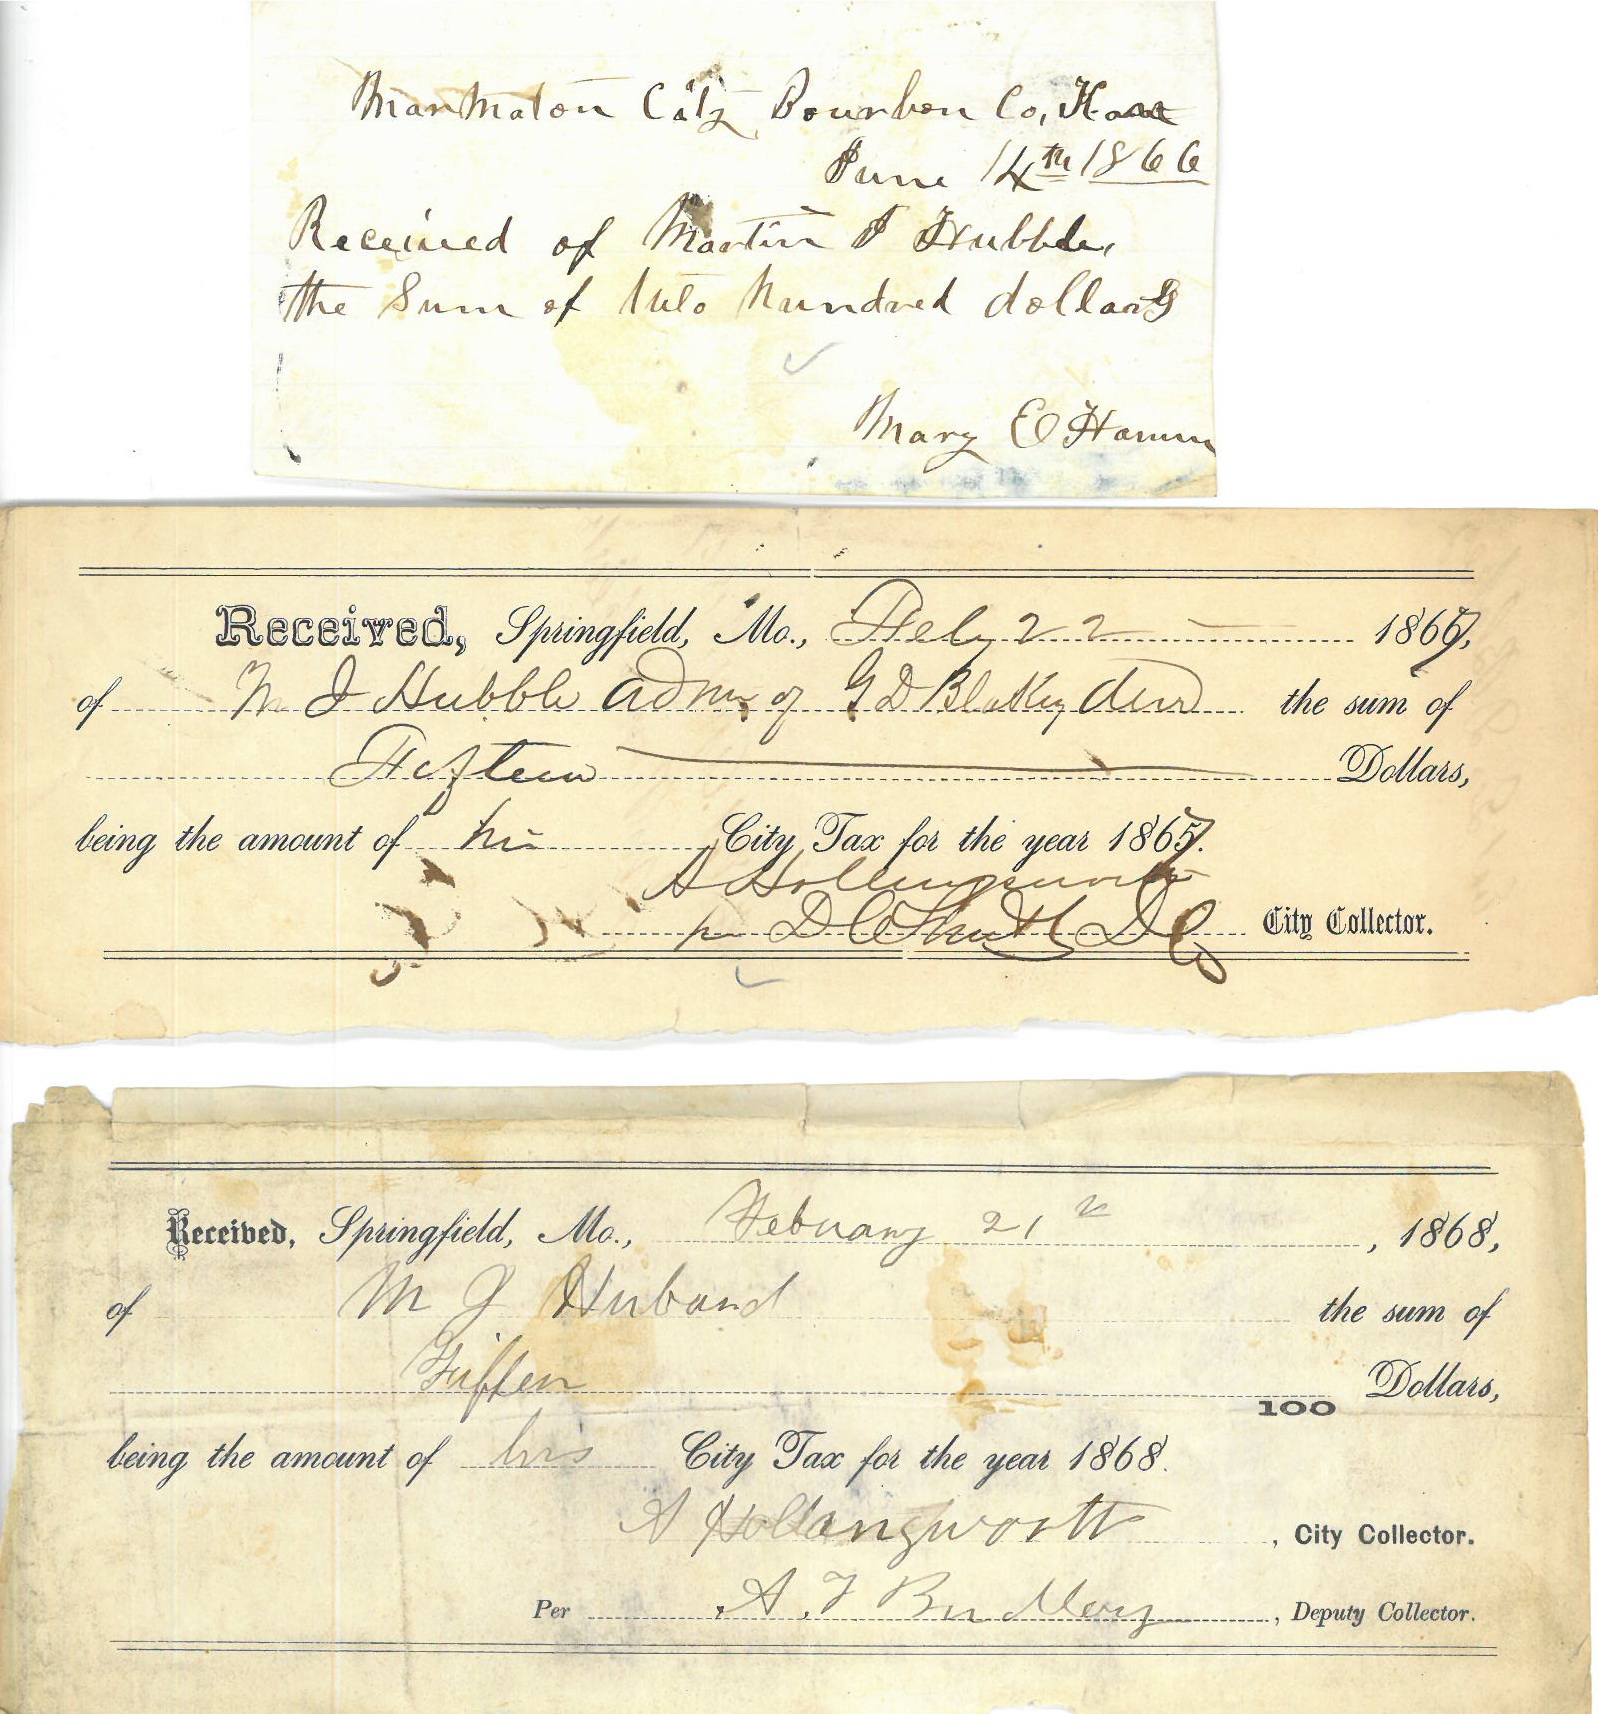 MarMaton City Bourbon Co, Kan
June 14th 1866
Received of Martin J Hubble,
the Sum of two hundred dollars
Mary E Hamm
Received, Springfield, Mo., Feby 22 1867,
of M J Hubble Admr of G D Blakey decd the sum of
Fifteen Dollars,
being the amount of his City Tax for the year 1867.
A Hollingsworth
pr D C Smith D C City Collector.
Received, Springfield, Mo., Febuary 21, 1868,
of M J Huband the sum of
Fiften Dollars,
100
being the amount of his City Tax for the year 1868.
A Hollangworth, City Collector.
Per A. F, Deputy Collector.